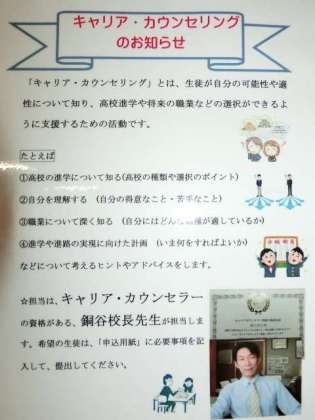 キャリア・カウンセリング
のお知らせ
「キャリア・カウンセリング」とは、生徒が自分の可能性や適
性について知り、高校進学や将来の職業などの選択ができるよ
うに支援するための活動です。
たとえば
①高校の進学について知る(高校の種類や選択のポイント)
②自分を理解する （自分の得意なこと・苦手なこと）
③職業について深く知る （自分にはどんな職種が適しているか）
④進学や進路の実現に向けた計画 （いま何をすればよいか）
などについて考えるヒントやアドバイスをします。
☆担当は、キャリア・カウンセラー
の資格がある、銅谷校長先生が担当しま
す。希望の生徒は、「申込用紙」に必要事項を記
入して、提出してください。